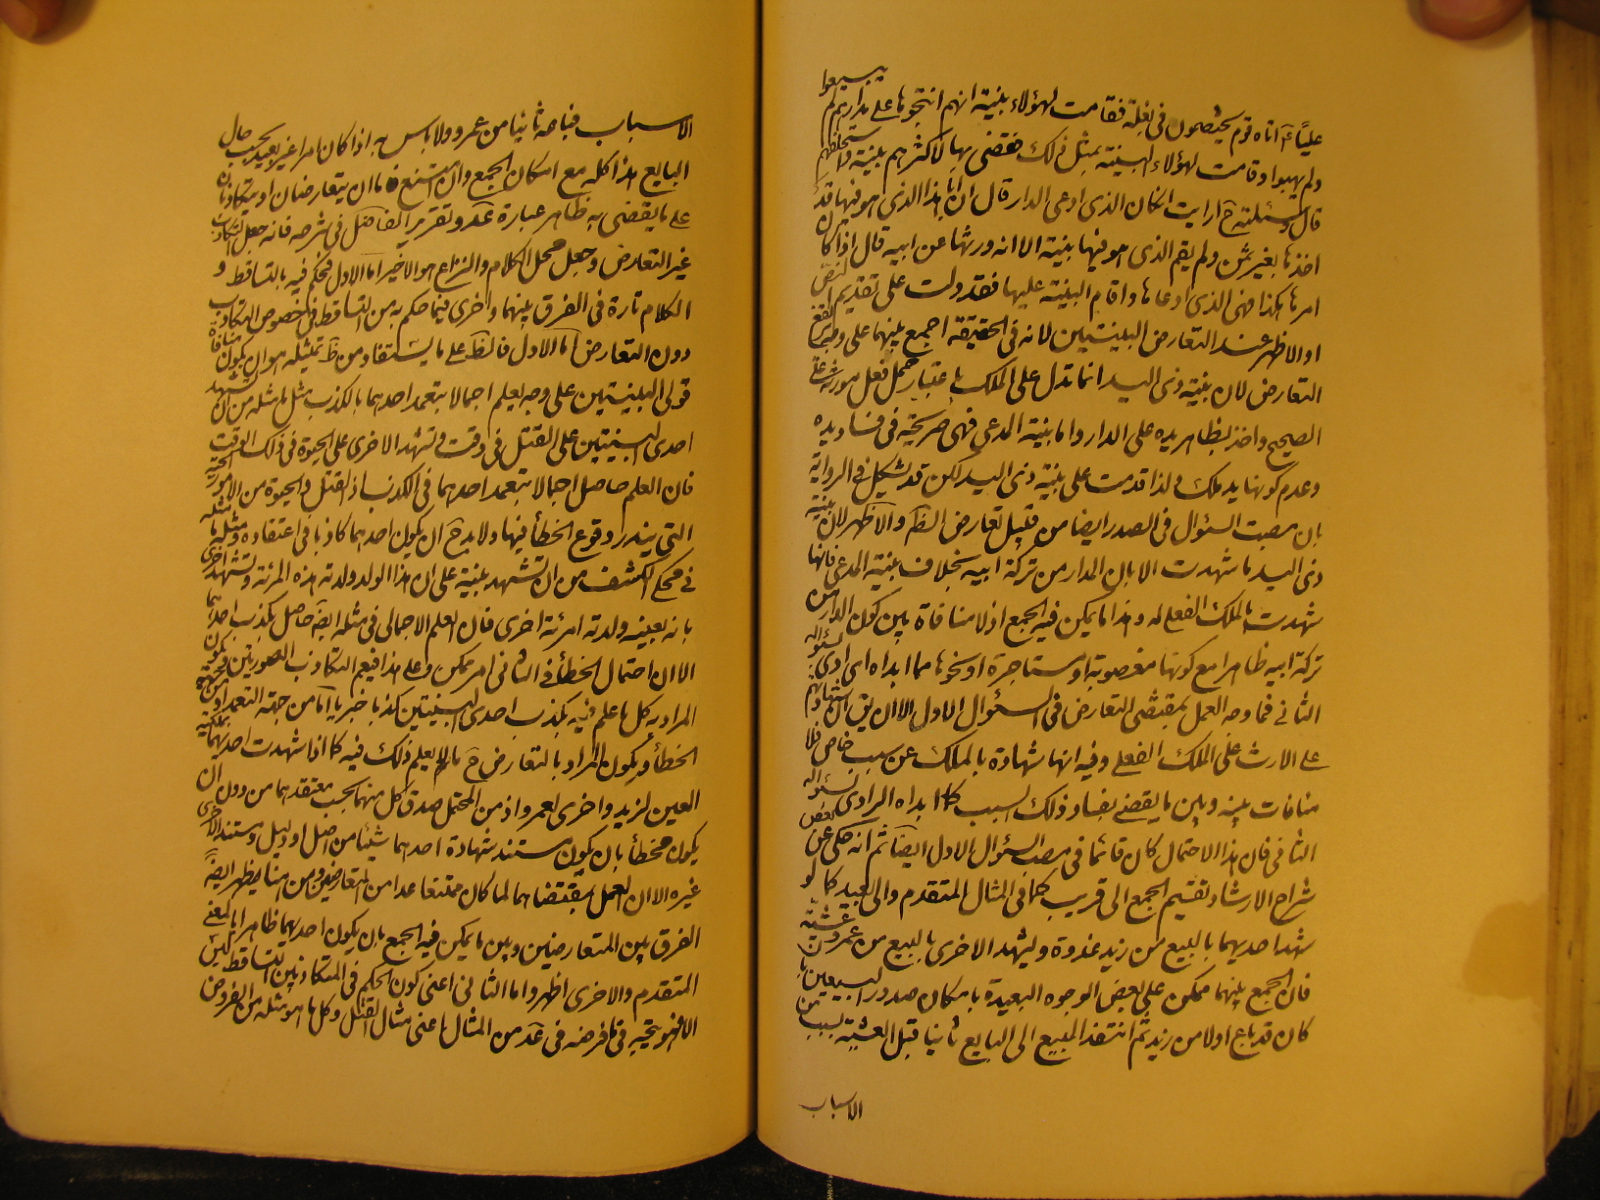 عليا ع اتاه قوم يختصمون في بغلة فقامت لهؤلاء بنية انهم انتجوها على مذاودهم لم يبيعوا
ولم يهبوا وقامت لهؤلاء البنية بمثل ذلك فقضى بها لاكثرهم بنية واستحلفهم
قال وسئلته ح ارايت ان كان الذي ادعى الدار قال ان ابا هذا الذي هو فيها قد
اخذها بغير ثمن ولم يقم الذي هو فيها بنية الا انه ورثها عن ابيه قال اذا كان
امرها هكذا فهي الذي ادعاها واقام البنية عليها فقد دلت على تقديم
او الاظهر عند التعارض البينتين لانه في الحقيقة اجمع بينهما على وجه
التعارض لان بنية ذي اليد انما تدل على الملك باعتبار حمل فعل مورثه على
الصحيح واخذ بظاهر يده على الدار واما بنية المدعي فهي صريحة في فساد يده
وعدم كونها يد ملك ولذا قدمت على بنية ذي اليد لكن قد يشكل في الرواية
بان مصب السئوال في الصدر ايضا من قبيل تعارض الظ والاظهر لان بنية
ذي اليد ما شهدت الا بان الدار من تركة ابيه بخلاف بنية المدعي فانها
شهدت بالملك الفعلي له وهذا مما يمكن فيه الجمع اذ لا منافاة بين كون الدار من
تركة ابيه ظاهرا مع كونها مغصوبة او مستاجرة او نحوها مما ابداه الراوي في سئواله
الثاني فما وجه العمل بمقتضى التعارض في السئوال الاول الا ان يق ان شهادتهم
على الارث على الملك الفعلي وفيه انها شهادة بالملك عن سبب خاص فلا
منافات بينه وبين ما يقضي بفساد ذلك السبب كما ابداه الراوي في سئواله
الثاني فان هذا الاحتمال كان قائما في مصب السئوال الاول ايضا ثم انه حكى عن بعض
شراح الارشاد تقسيم الجمع الى قريب كما في المثال المتقدم والى بعيد كما لو
شهد احديهما بالبيع من زيد غدوة وليشهد الاخرى بالبيع من عمرو عشية
فان الجمع بينهما ممكن على بعض الوجوه البعيدة بامكان صدور البيعين بان
كان قد باع اولا من زيد ثم انتقد المبيع الى البايع ثانيا قبل العشية بسبب من
الاسباب
الاسباب فباعه ثانيا من عمرو ولا باس به اذا كان امرا غير بعيد بحسب حال
البايع هذا كله مع امكان الجمع وان امتنع فاما ان يتعارضان او يتكاذبان
على ما يقضي به ظاهر عبارة عد وتقرير الفاضل في شرحه فانه جعل التكاذب
غير التعارض وجعل محل الكلام والنزاع هو الاخير اما الاول فيحكم فيه بالتساقط و
الكلام تارة في الفرق بينهما واخرى فيما حكم به من التساقط في خصوص التكاذب
دون التعارض اما الاول فالظ على ما يستفاد من ظ تمثيله هو ان يكون منافاة
قولي البينتين على وجه يعلم اجمالا بتعمد احدهما بالكذب مثل ما مثله من ان تشهد
احدى البينتين على القتل في وقت وتشهد الاخرى على الحيوة في ذلك الوقت
فان العلم حاصل اجمالا بتعمد احدهما في الكذب اذ القتل والحيوة من الامور الحسية
التي يندر وقوع الخطأ فيها ولا بد ح ان يكون احدهما كاذبا في اعتقاده ومثله ما مثله
في محكي الكشف من ان تشهد بنية على ان هذا الولد ولدته هذه المرئة وتشهد اخرى
بانه بعينه ولدته امرئة اخرى فان العلم الاجمالي في مثله ايض حاصل بكذب احدهما
الا ان احتمال الخطأ في الثاني امر ممكن وعلى هذا فيعم التكاذب الصورتين فيكون
المراد به كل ما علم فيه بكذب احدى البينتين كذبا خبريا اما من جهة التعمد او من جهة
الخطأ ويكون المراد بالتعارض ح ما لم يعلم ذلك فيه كما اذا شهدت احديهما بملكية
العين لزيد واخرى لعمرو اذ من المحتمل صدق كل منهما بحسب معتقدهما من دون ان
يكون مخطأ بان يكون مستند شهادة احدهما شيئا من اصل او دليل ومستند الاخرى
غيره الا ان العمل بمقتضاهما لما كان ممتنعا عدا من المتعارضين ومن هنا يظهر ايض
الفرق بين المتعارضين وبين ما يمكن فيه الجمع بان يكون احدهما ظاهرا بالمعنى
المتقدم والاخرى اظهر واما الثاني اعني كون الحكم في المتكاذبين التساقط ليس
الا فهو متجه فيما فرضه في عد من المثال اعني مثال القتل وكل ما هو مثله من الفروض